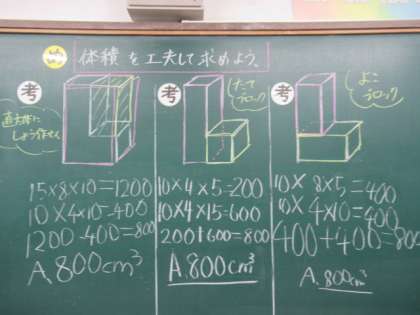 体積を工夫して求めよう。
考
直方体に
しょう作せん
15×8×10=1200
10×4×10=400
1200-400=800
A.800cm³
考
たて
ブロック
10×4×5=200
10×4×15=600
200+600=800
A.800cm³
考
よこ
ブロック
10×8×5=400
10×4×10=400
400+400=800
A.800cm³